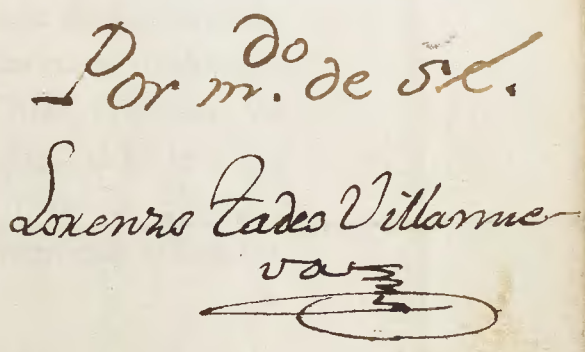 Por m.do de S.E.
Lorenzo Tadeo Villanue-
va